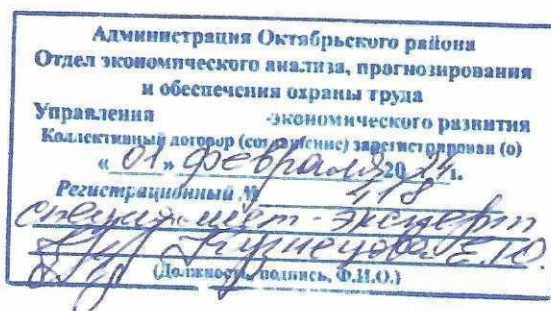 Администрация Октябрьского района
Отдел экономического анализа, прогнозирования
и обеспечения охраны труда
Управления -экономического развития
Коллективный договор (соглашение) зарегистрирован (о)
« 01 » февраля 2024 г.
Регистрационный № 418
специалист-эксперт
Кузнецова Е.Ю.
(Должность, подпись, Ф.И.О.)